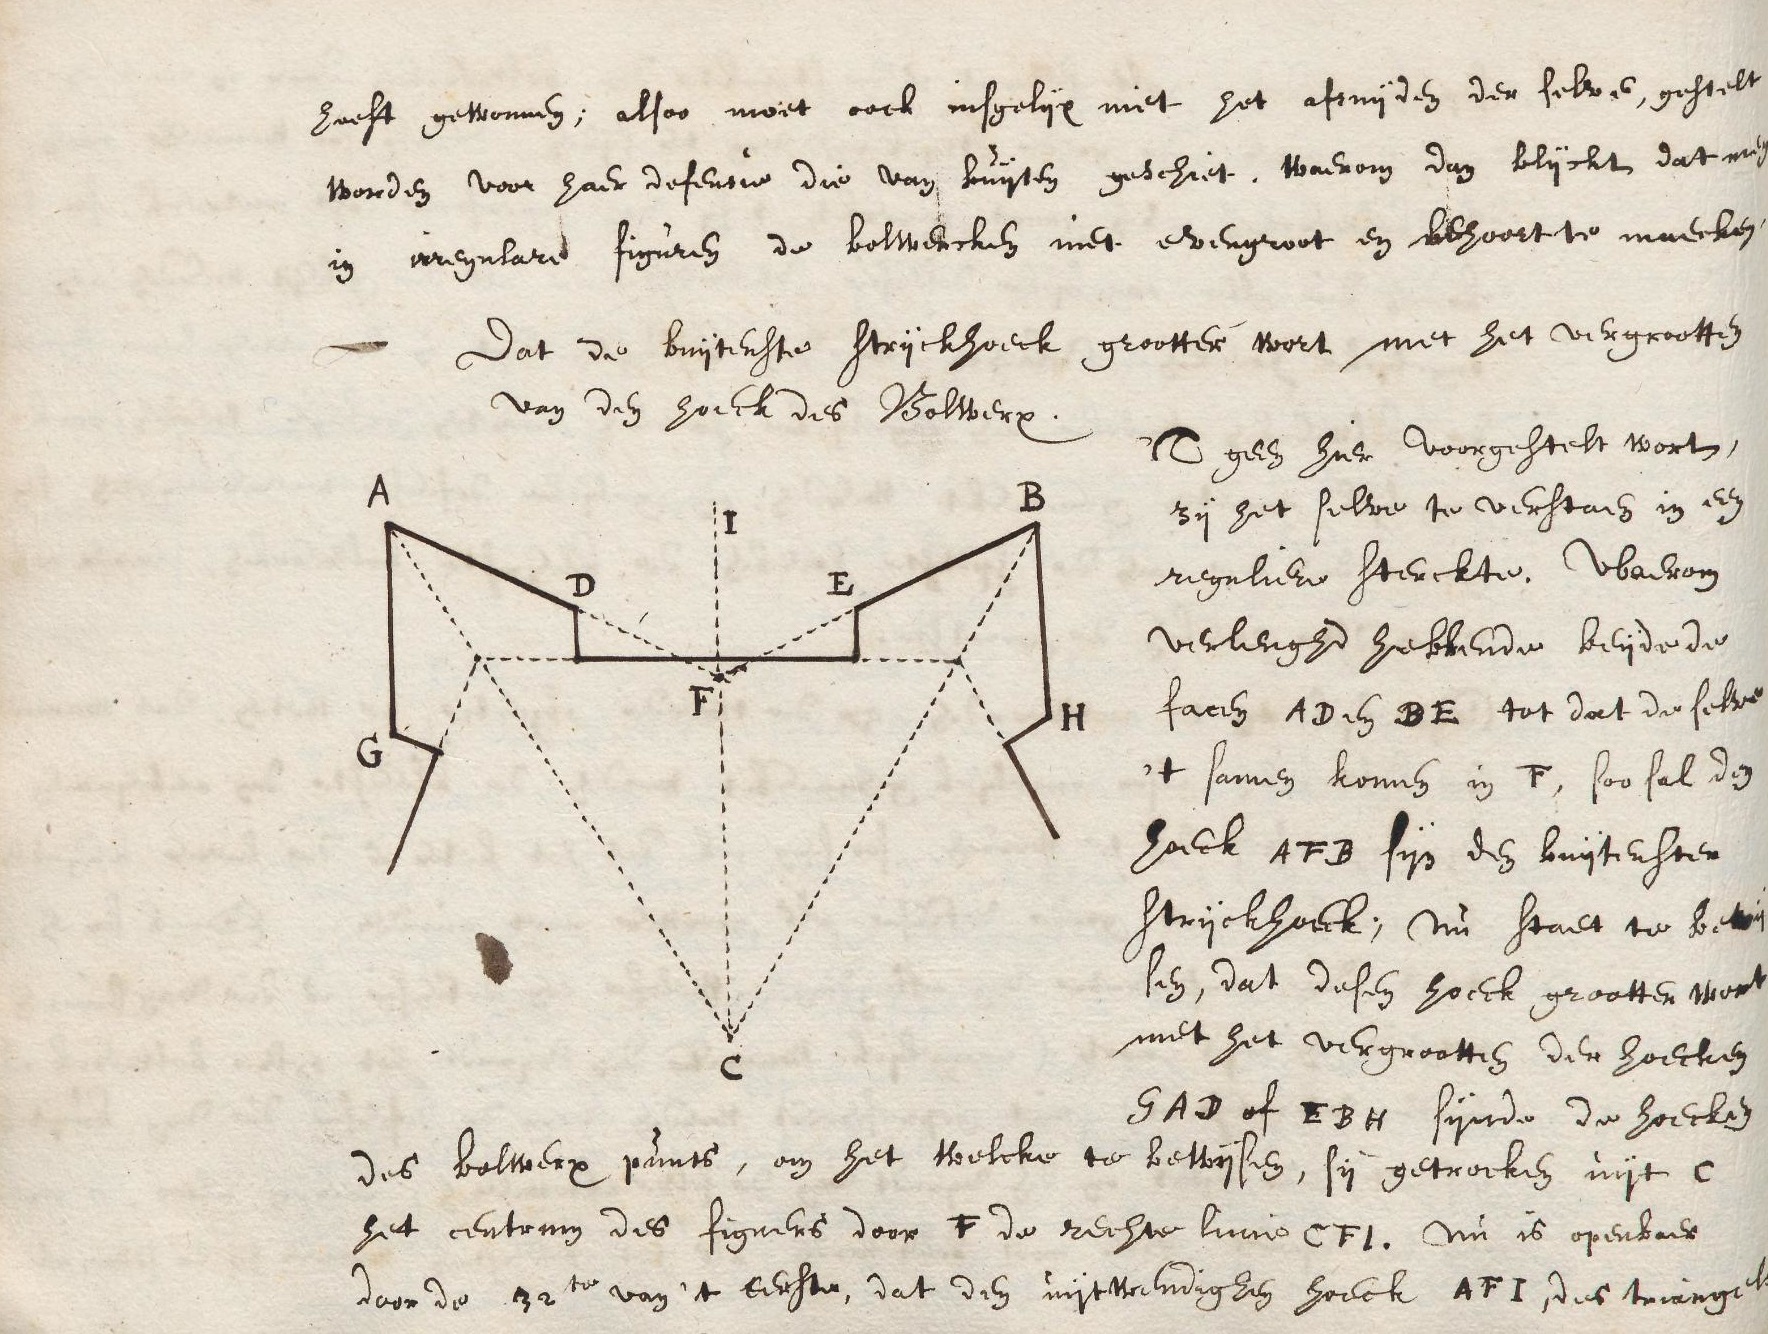 heeft gewonnen; alsoo moet oock insgelijx met het afsnijden der selve, gestelt
worden voor haer defensie die van buijten geschiet. Waerom dan blijckt dat men
in irregulare figuren de bolwercken niet evengroot en behoort te maecken.
Dat de buijtenste strijckhoeck grootter wort met het vergrootten
van den hoeck des Bolwerx.
'T geen hier voorgestelt wort,
zij het selve te verstaen in een
reguliere sterckte. Waerom
verlenghd hebbende beijde de
facen AD en BE tot dat de selve
't samen komen in F, soo sal den
hoeck AFB sijn den buijtenster
strijckhoeck; nu staet te bewij
sen, dat desen hoeck grootter wort
met het vergrootten der hoecken
GAD of EBH sijnde de hoecken
des bolwerx punts, om het welcke te bewijsen, sij getrocken uijt C
het centrum des figuers door F de rechte linie CFI. Nu is openbaer
door de 32te van 't Eerste, dat den uijtwendighen hoeck AFI, des triangels
A
B
I
D
E
F
G
H
C